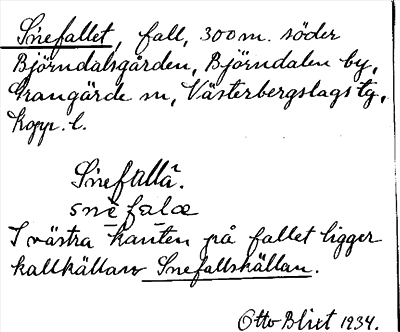 Snefallet, fall, 300 m. söder
Björndalsgården, Björndalen by,
Grangärde sn, Västerbergslags tg,
Kopp. l.
Snefallä.
snèfalæ
I västra kanten på fallet ligger
kallkällan Snefallskällan.
Otto Blixt 1934.